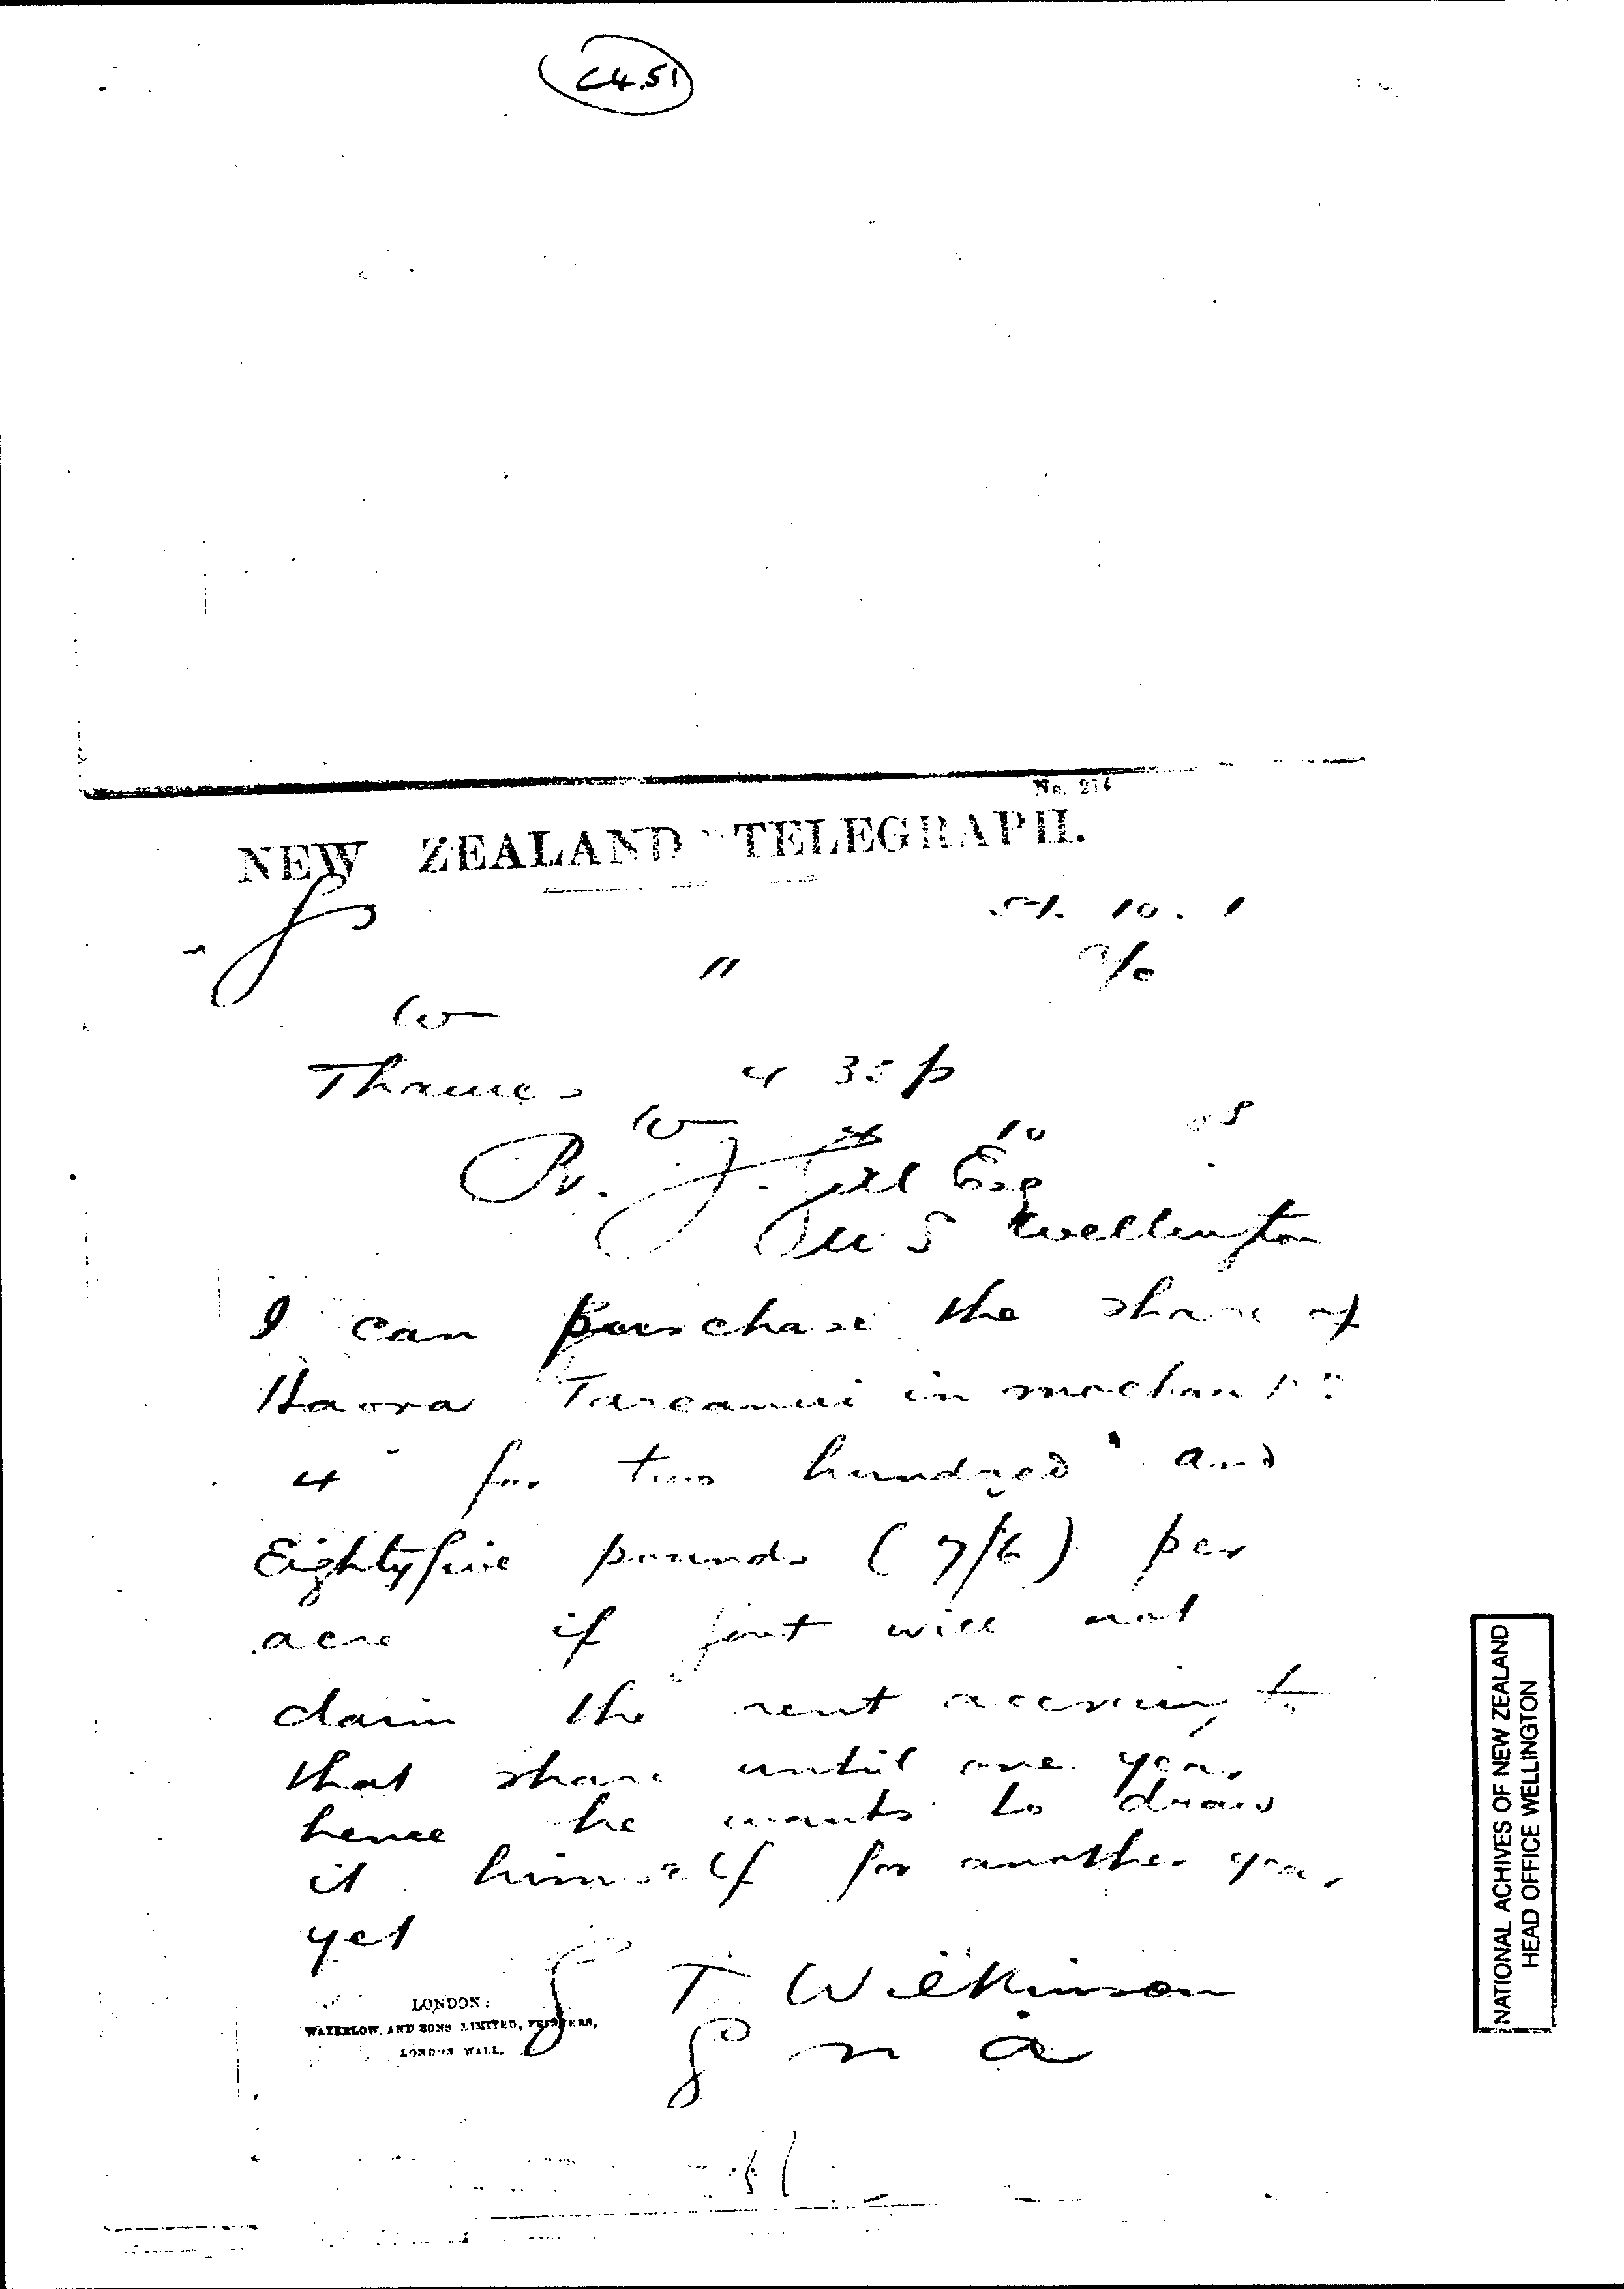 C4.51
No. 214
NEW ZEALAND TELEGRAPH.
10 . 1
"
Thames 4 35 p
10
R. J. Gill Esq
Wellington
I can purchase the share of
Haora Tareranui in
4 for two hundred and
Eightyfive pounds (7/6) per
acre if govt will not
claim the rent accruing to
that share until one year
hence he wants to draw
it himself for another year
yet
G T Wilkinson
LONDON:
WATERLOW AND SONS LIMITED, PRINTERS,
LONDON WALL.
NATIONAL ACHIVES OF NEW ZEALAND
HEAD OFFICE WELLINGTON